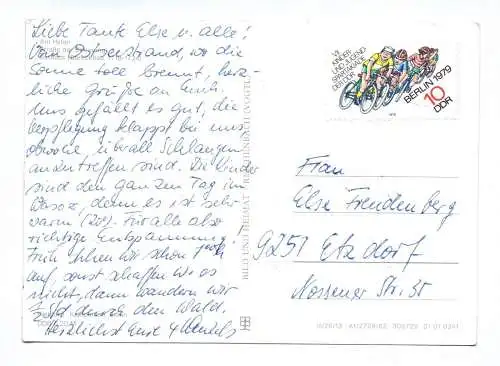 Liebe Tante Else u. alle!
Vom Ostseestrand, wo die
Sonne toll brennt, herz-
liche Grüße an Euch.
Uns gefällt es gut, die
Verpflegung klappt bei uns
obwohl überall Schlangen
anzutreffen sind. Die Kinder
sind den ganzen Tag im
Wasser, denn es ist sehr
warm (20°). Für alle also
richtige Entspannung.
Früh stehen wir schon
auf, sonst schaffen wir es
nicht, dann wandern wir
durch den Wald.
Herzlichst Eure 4
BILD UND HEIMAT REICHENBACH (VOGTL)
VII.
KINDER
UND JUGEND
SPARTAKIADE
DER DDR
BERLIN 1979
10
DDR
1979
Frau
Else Freudenberg
9251 Etzdorf
Nossener Str. 35